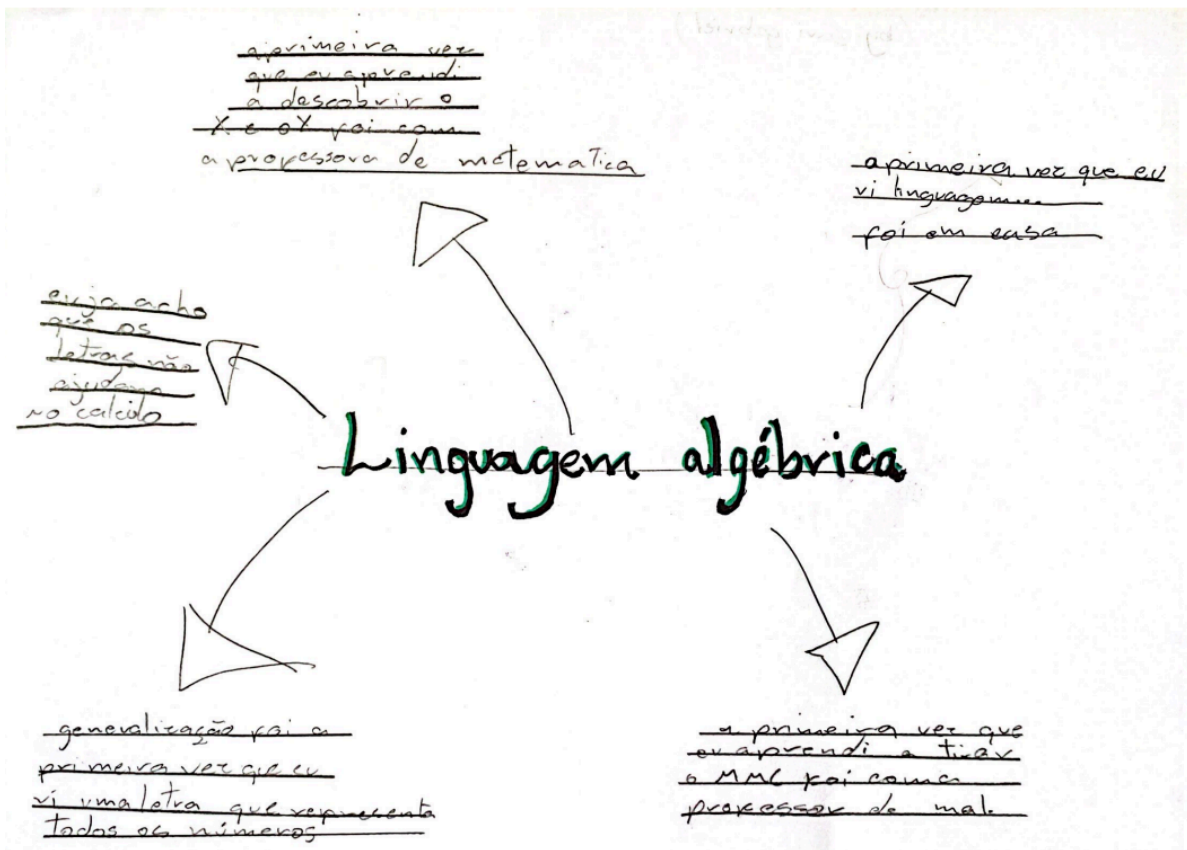 a primeira vez
que eu aprendi
a descobrir o
X e o Y foi com
a professora de metematica
a primeira vez que eu
vi linguagem...
foi em casa
eu ja acho
que os
letras não
ajudam
no calculo
Linguagem algébrica
generalização foi a
primeira vez que eu
vi uma letra que representa
todos os números
a primeira vez que
eu aprendi a tirar
o MMC foi com a
professor de mat.